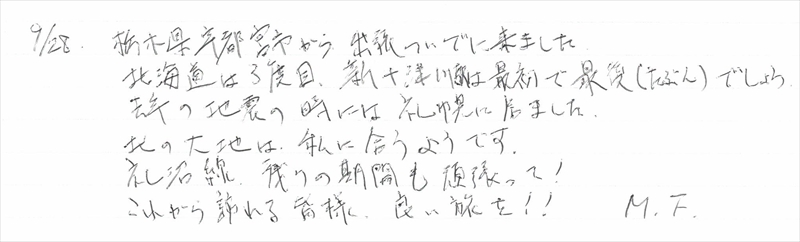 9/28. 栃木県宇都宮市から出張ついでに来ました
北海道は3度目、新十津川駅は最初で最後(たぶん)でしょう
去年の地震の時には札幌に居ました.
北の大地は、私に合うようです.
札沼線、残りの期間も頑張って!
これから訪れる皆様に、良い旅を!! M.F.